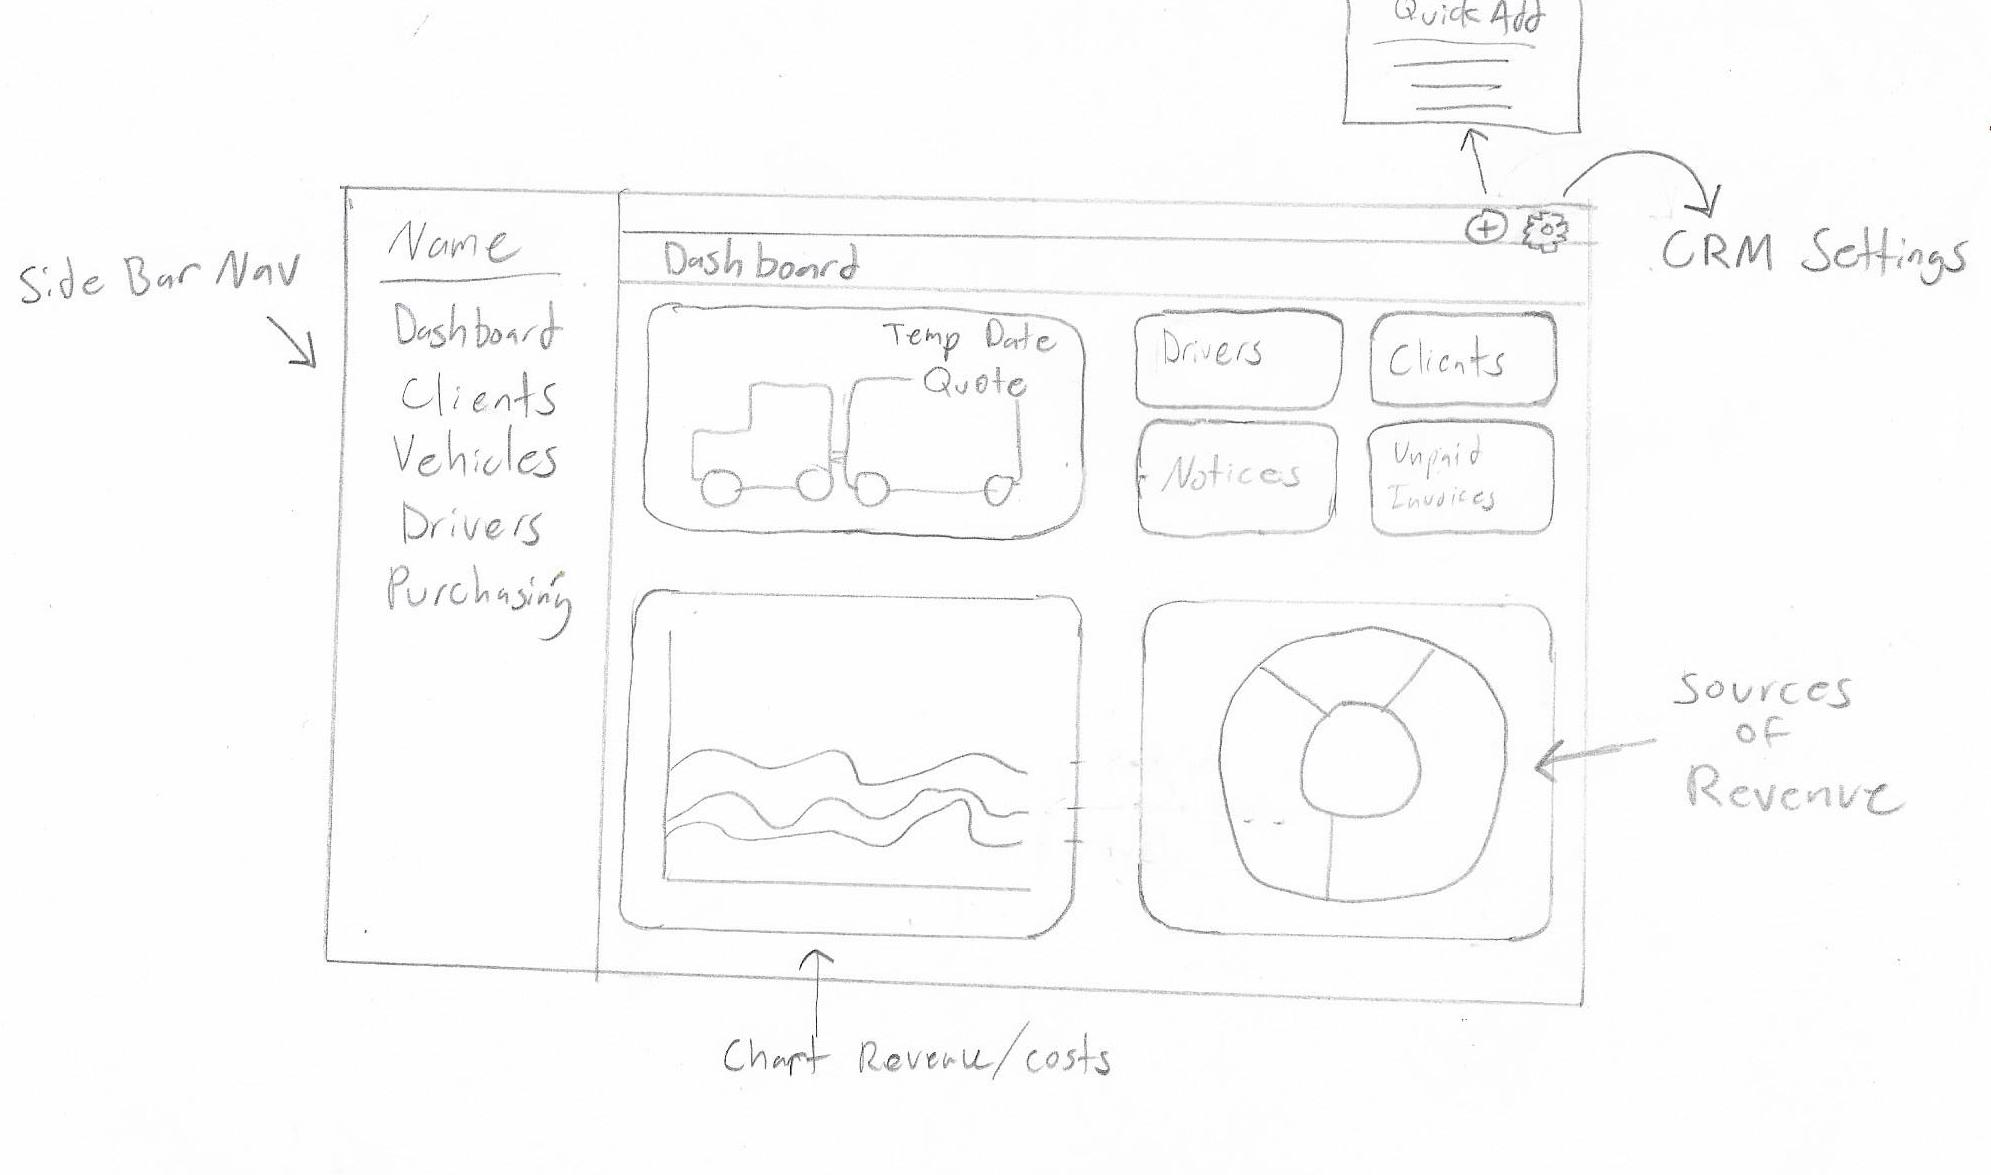 Quick Add
CRM Settings
Side Bar Nav
Name
Dashboard
Clients
Vehicles
Drivers
Purchasing
Dashboard
Temp Date
Quote
Drivers
Clients
Notices
Unpaid
Invoices
Sources
of
Revenue
Chart Revenue/costs